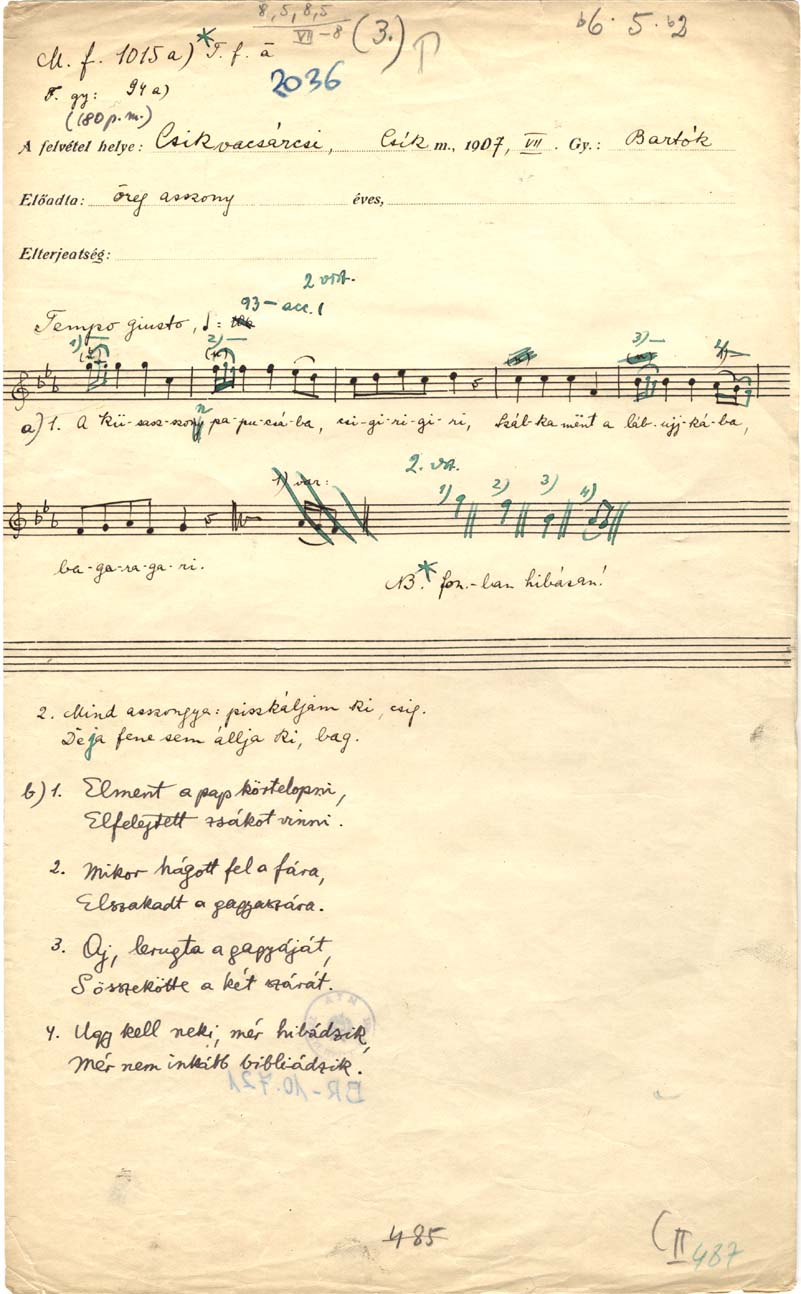 8, 5, 8, 5
VII – 8
(3.)
b6 · 5 · b2
M. f. 1015 a) * T. f. a
2036
F. gy: 94 a)
(180 p. m.)
A felvétel helye: Csikvacsárcsi, Csík m., 1907, VII. Gy.: Bartók
Előadta: öreg asszony éves,
Elterjedtség:
2 vrt.
93 – acc. 1
Tempo giusto,
1) 2) 3) 4)
a) 1. A kü-sasz-szony pa-pu-csá-ba, csi-gi-ri-gi-ri, Szál-ka mënt a láb-ujj-ká-ba,
1) var:
2. vrt.
1) 2) 3) 4)
ba-ga-ra-ga-ri.
NB. * fon.-ban hibásan!
2. Mind asszongya: piszkáljam ki, csig.
De ja fene sem állja ki, bag.
b) 1. Elment a pap körtelopni,
Elfelejtett zsákot vinni.
2. Mikor hágott fel a fára,
Elszakadt a gagyaszára.
3. Aj, lerugta a gagyáját,
S összekötte a két szárát.
4. Ugy kell neki, mér hibádzik,
Mér nem inkább bibliádzik.
BR-10.721
485
(II 487